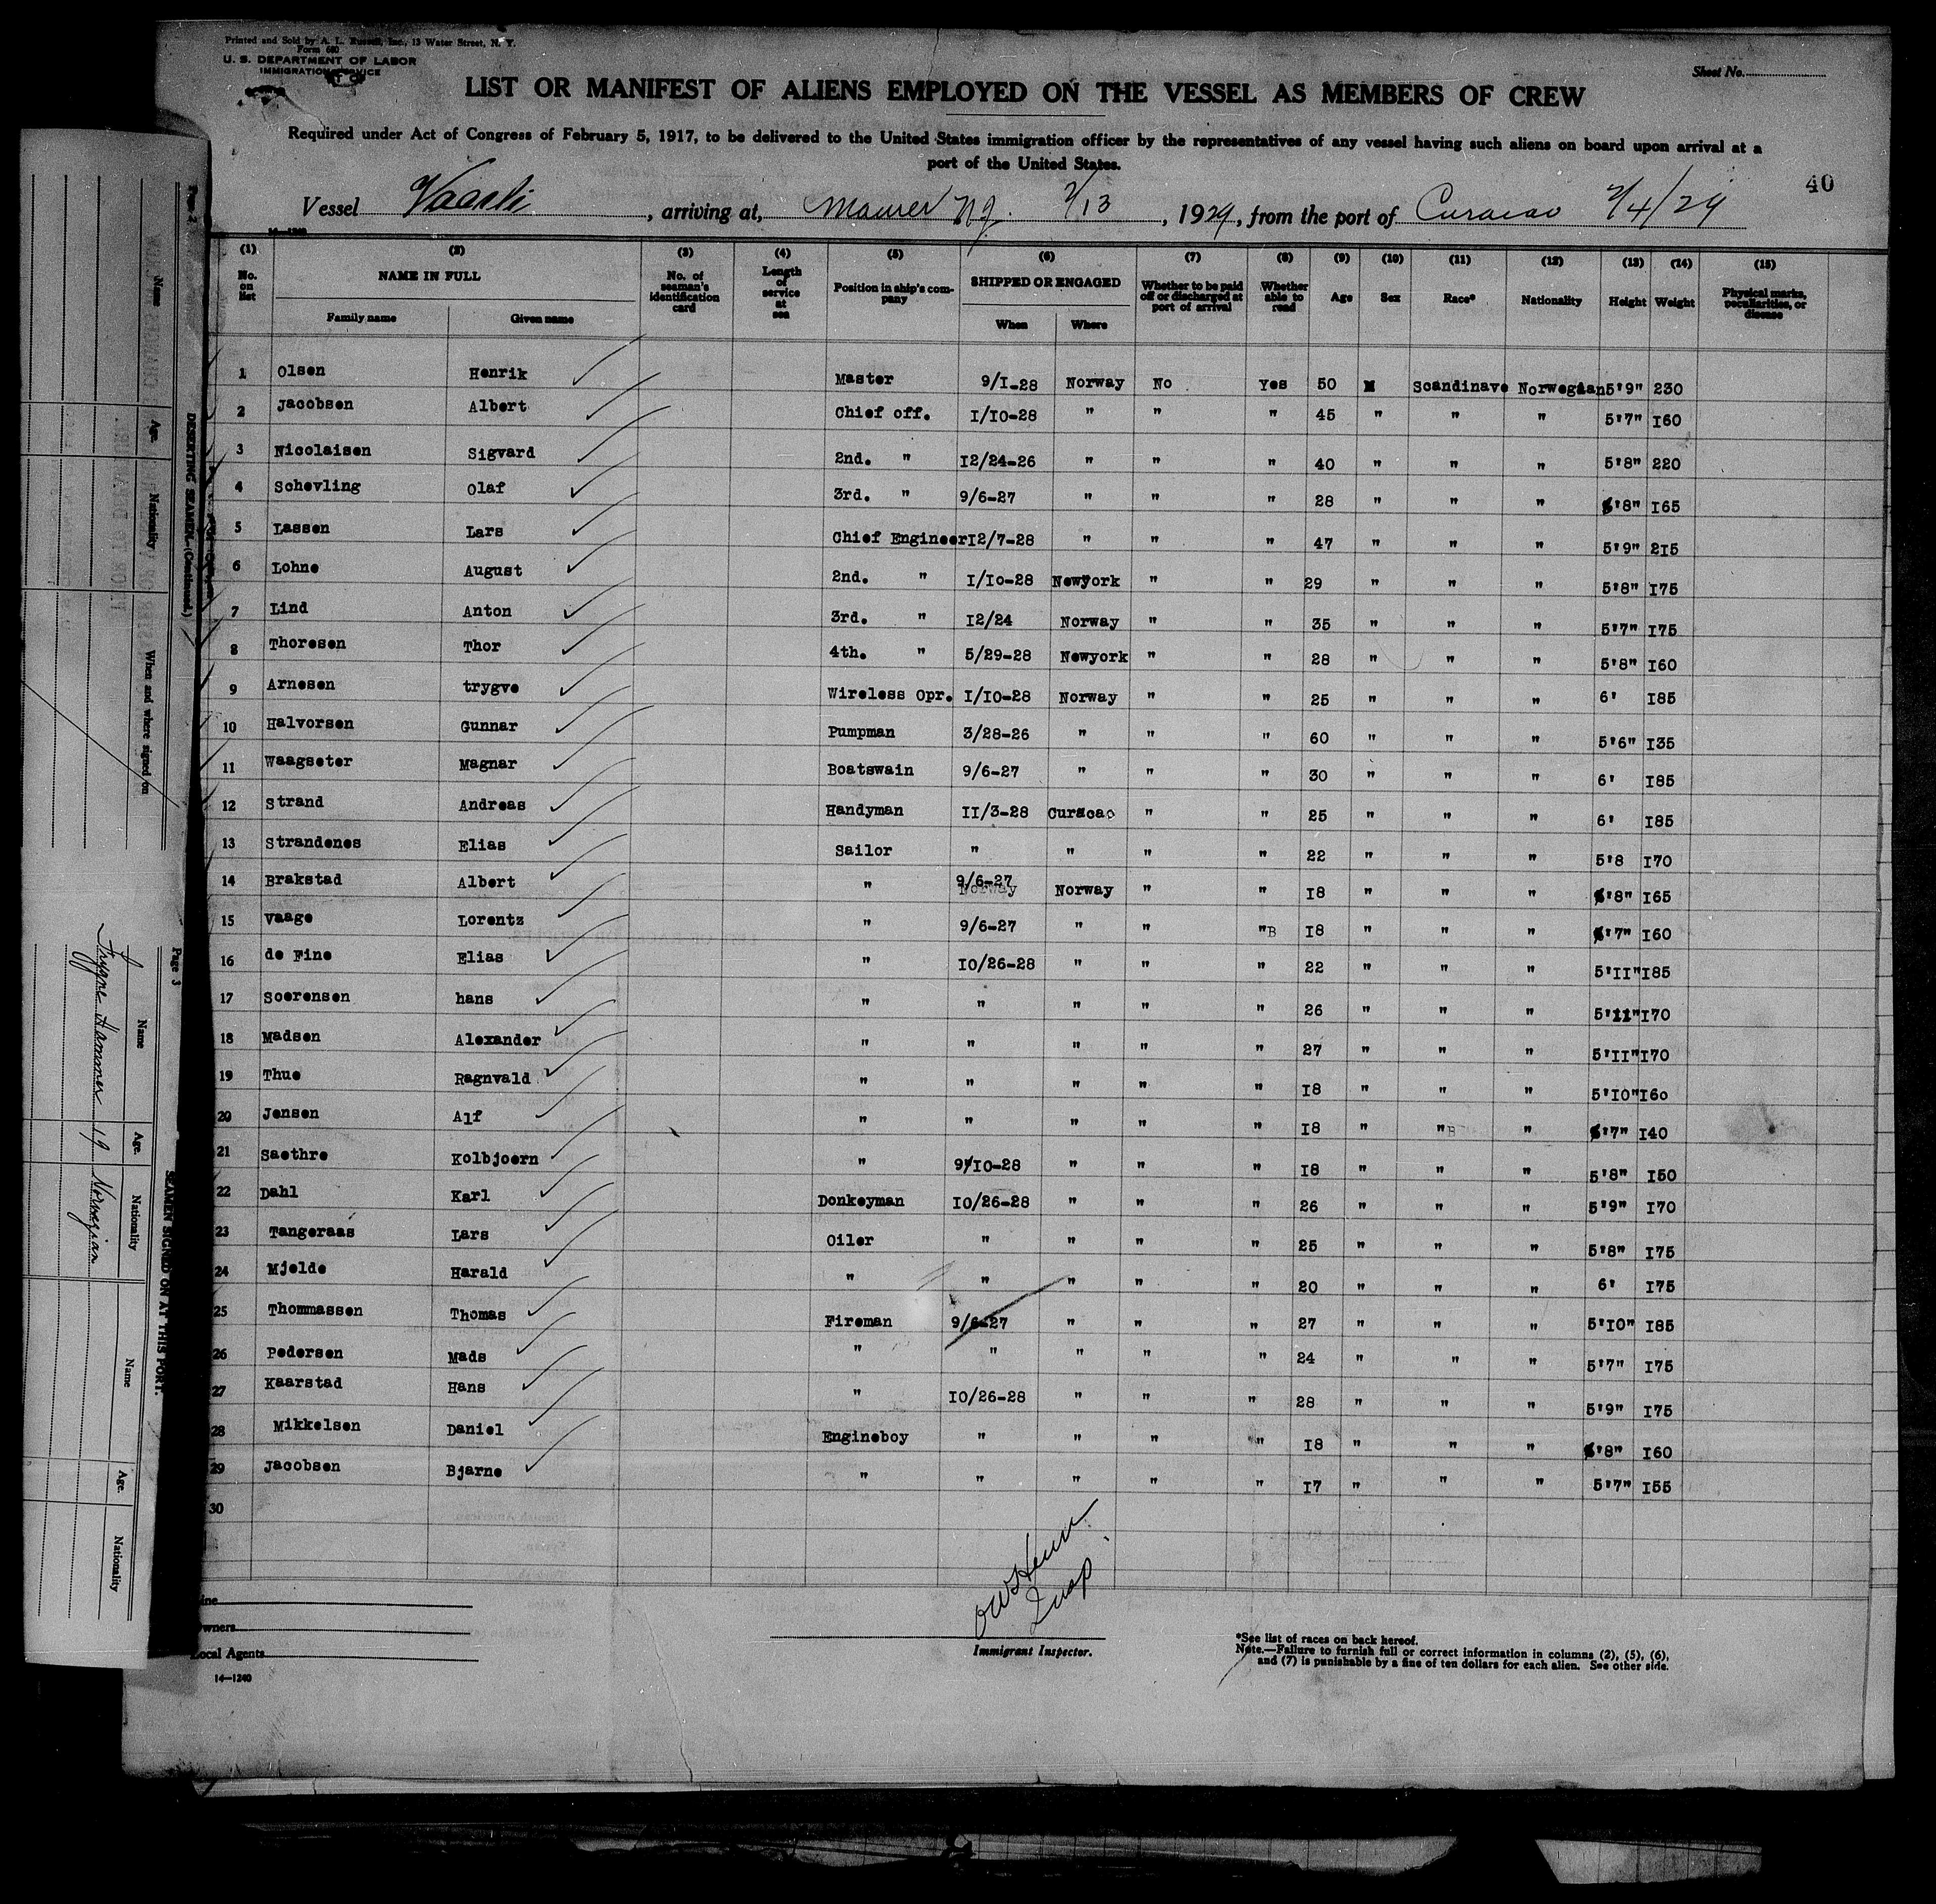 Printed and Sold by A. L. Russell, Inc., 13 Water Street, N. Y.
Form 680
U. S. DEPARTMENT OF LABOR
IMMIGRATION SERVICE
Sheet No.
LIST OR MANIFEST OF ALIENS EMPLOYED ON THE VESSEL AS MEMBERS OF CREW
Required under Act of Congress of February 5, 1917, to be delivered to the United States immigration officer by the representatives of any vessel having such aliens on board upon arrival at a
port of the United States.
40
Vessel Vaarli, arriving at, Maurer NJ. 2/13, 1929, from the port of Curacao 2/4/29
14—1240
(1) (2) (3) (4) (5) (6) (7) (8) (9) (10) (11) (12) (13) (14) (15)
No. on list NAME IN FULL No. of seaman's identification card Length of service at sea Position in ship's company SHIPPED OR ENGAGED Whether to be paid off or discharged at port of arrival Whether able to read Age Sex Race* Nationality Height Weight Physical marks, peculiarities, or disease
Family name Given name When Where
1 Olsen Henrik Master 9/I-28 Norway No Yes 50 M Scandinave Norwegian 5'9" 230
2 Jacobsen Albert Chief off. I/I0-28 " " " 45 " " " 5'7" I60
3 Nicolaisen Sigvard 2nd. " I2/24-26 " " " 40 " " " 5'8" 220
4 Schevling Olaf 3rd. " 9/6-27 " " " 28 " " " 5'8" I65
5 Lassen Lars Chief Engineer I2/7-28 " " " 47 " " " 5'9" 2I5
6 Lohne August 2nd. " I/I0-28 Newyork " " 29 " " " 5'8" I75
7 Lind Anton 3rd. " I2/24 Norway " " 35 " " " 5'7" I75
8 Thoresen Thor 4th. " 5/29-28 Newyork " " 28 " " " 5'8" I60
9 Arnesen trygve Wireless Opr. I/I0-28 Norway " " 25 " " " 6' I85
10 Halvorsen Gunnar Pumpman 3/28-26 " " " 60 " " " 5'6" I35
11 Waagseter Magnar Boatswain 9/6-27 " " " 30 " " " 6' I85
12 Strand Andreas Handyman II/3-28 Curacao " " 25 " " " 6' I85
13 Strandenes Elias Sailor " " " " 22 " " " 5'8 I70
14 Brakstad Albert " 9/6-27 Norway " " I8 " " " 5'8" I65
15 Vaage Lorentz " 9/6-27 " " "B I8 " " " 5'7" I60
16 de Fine Elias " I0/26-28 " " " 22 " " " 5'II" I85
17 Soerensen hans " " " " " 26 " " " 5'11" I70
18 Madsen Alexander " " " " " 27 " " " 5'II" I70
19 Thue Ragnvald " " " " " I8 " " " 5'I0" I60
20 Jensen Alf " " " " " I8 " "B " 5'7" I40
21 Saethre Kolbjoern " 9/I0-28 " " " I8 " " " 5'8" I50
22 Dahl Karl Donkeyman I0/26-28 " " " 26 " " " 5'9" I70
23 Tangeraas Lars Oiler " " " " 25 " " " 5'8" I75
24 Mjelde Harald " " " " " 20 " " " 6' I75
25 Thommassen Thomas Fireman 9/6-27 " " " 27 " " " 5'I0" I85
26 Pedersen Mads " " " " " 24 " " " 5'7" I75
27 Kaarstad Hans " I0/26-28 " " " 28 " " " 5'9" I75
28 Mikkelsen Daniel Engineboy " " " " I8 " " " 5'8" I60
29 Jacobsen Bjarne " " " " " I7 " " " 5'7" I55
30
Owners
Local Agents
14—1240
Immigrant Inspector.
*See list of races on back hereof.
Note.—Failure to furnish full or correct information in columns (2), (5), (6),
and (7) is punishable by a fine of ten dollars for each alien. See other side.
Page 2
DESERTING SEAMEN.—(Continued.)
Name Age. Nationality When and where signed on
Page 3
SEAMEN SIGNED ON AT THIS PORT.
Name Age. Nationality Name Age. Nationality
Trygve Hammer 19 Norwegian